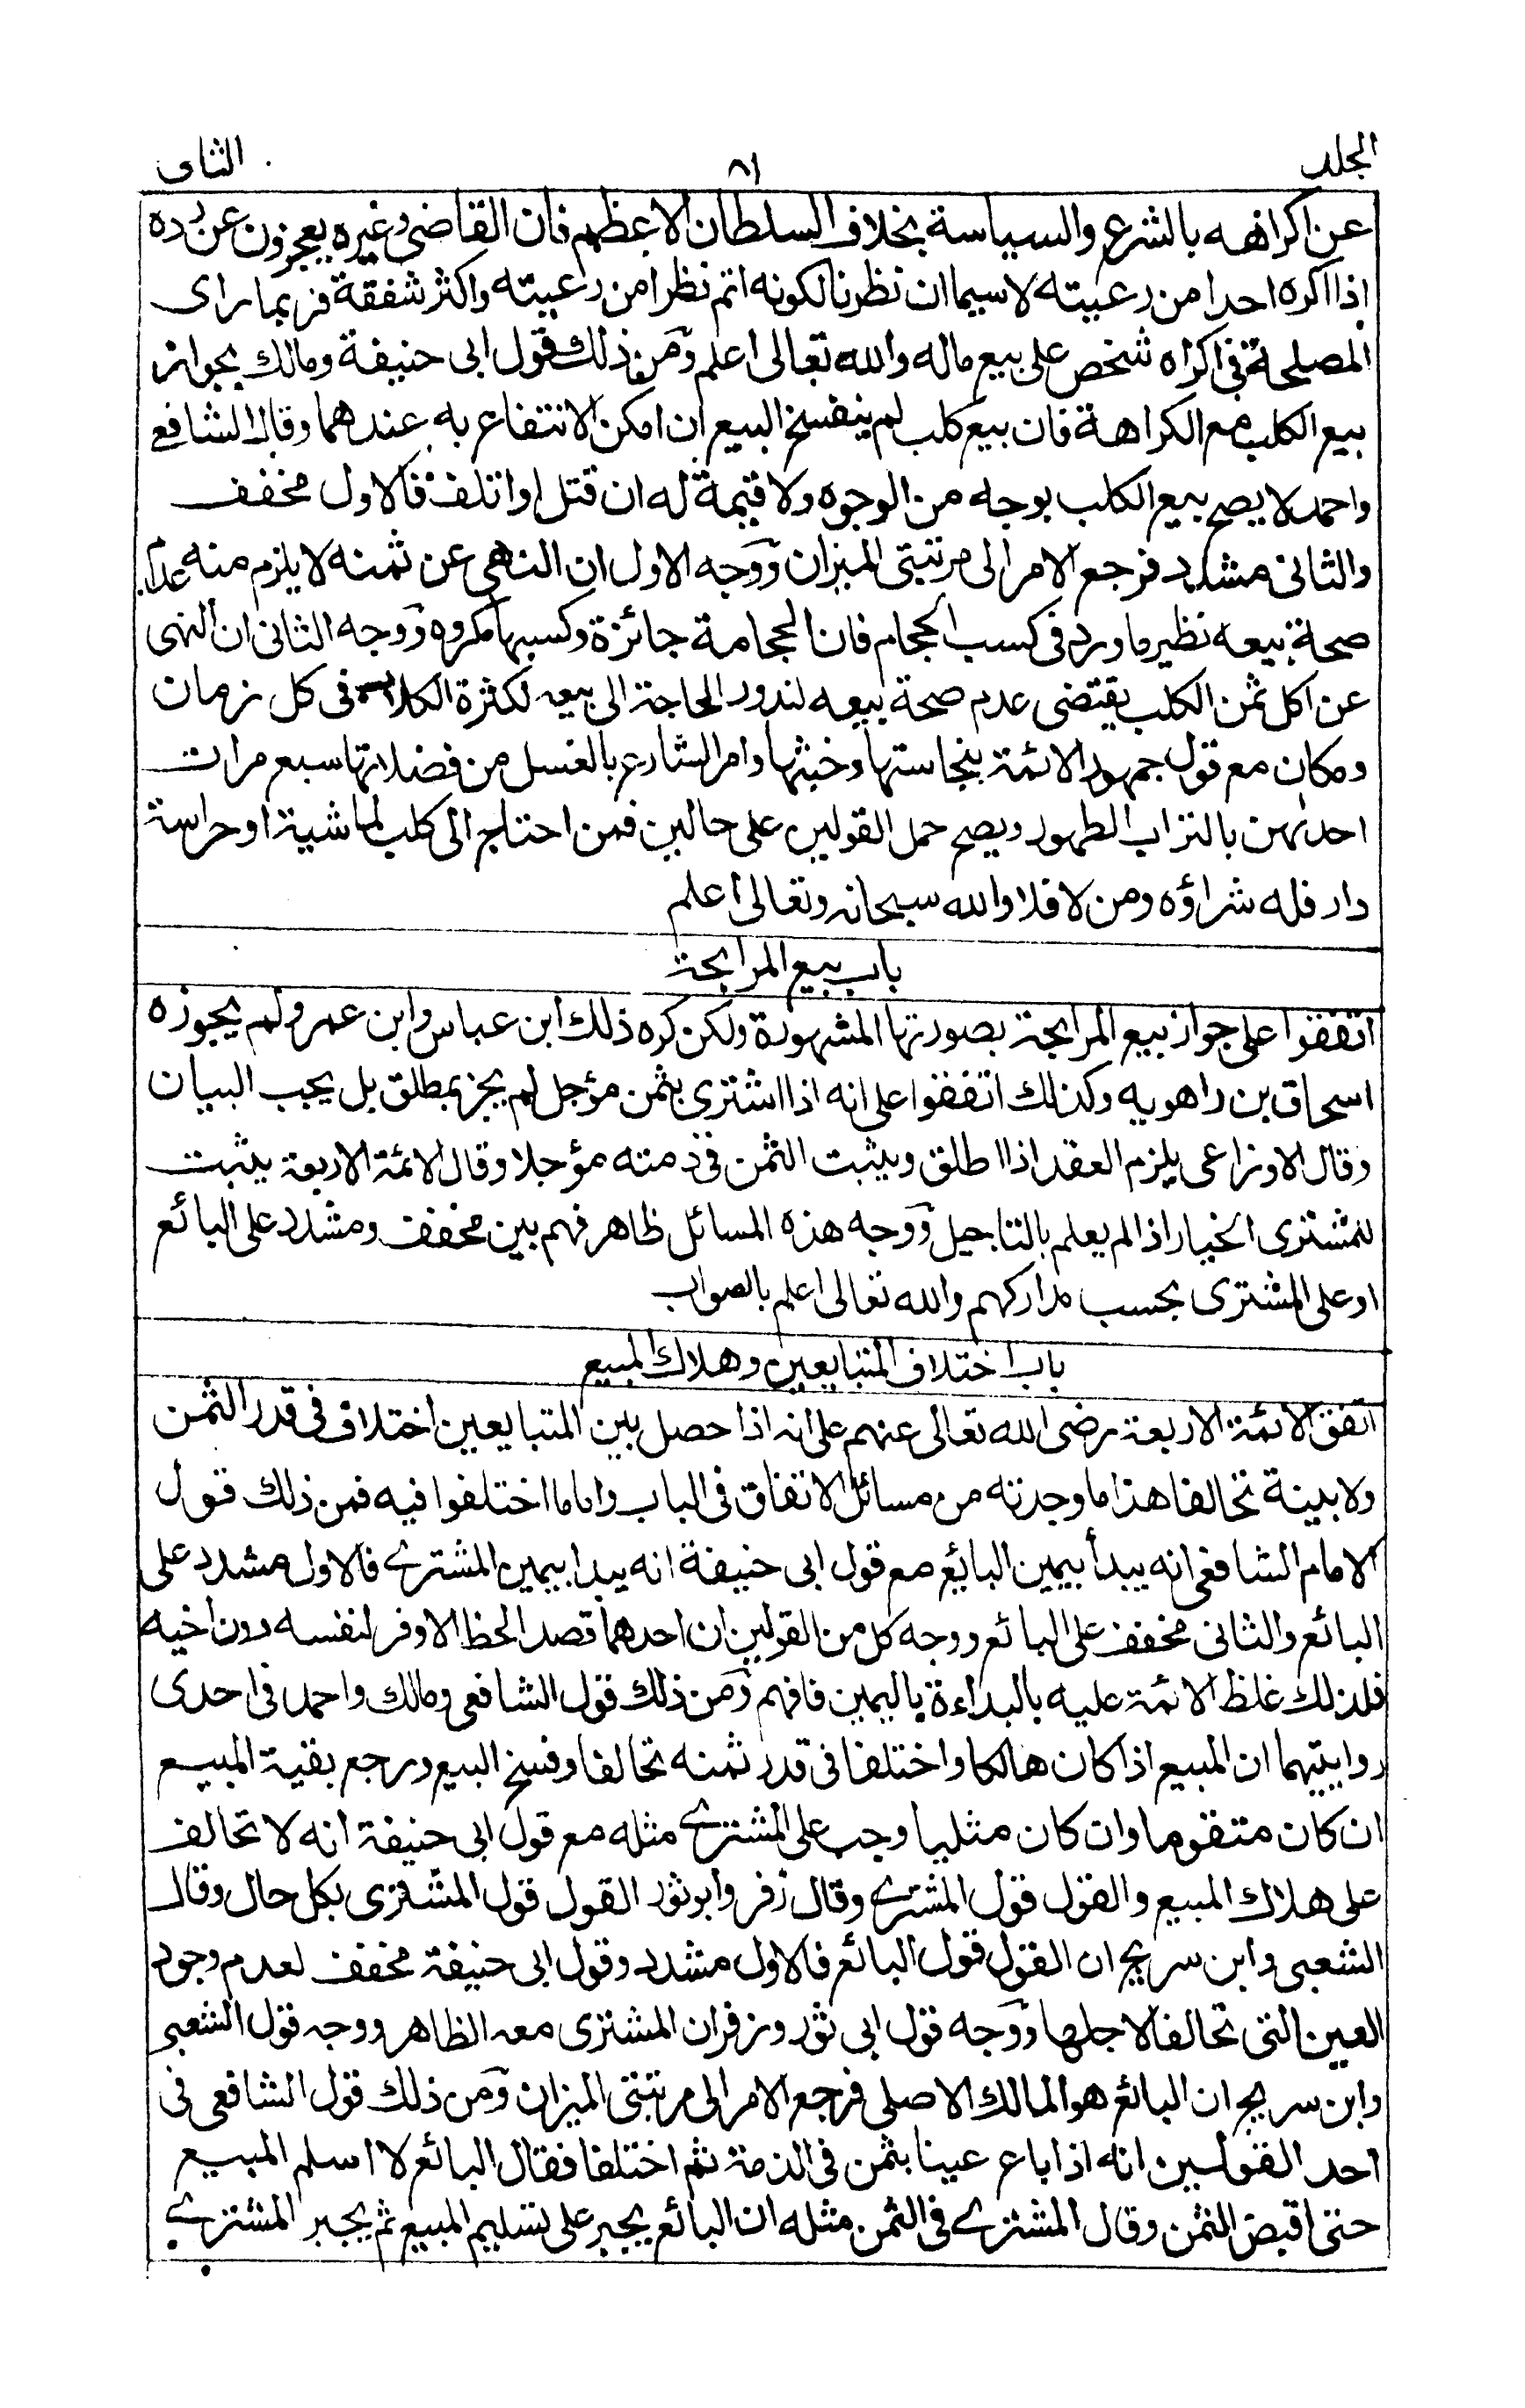 الجلد ٨١ الثانى
عن اكراهه بالشرع والسياسة بخلاف السلطان الاعظم فان القاضى وغيره يعجزون عن رده
اذا اكره احدا من رعيته لا سيما ان نظرنا لكونه اتم نظرا من رعيته واكثر شفقة فربما راى
المصلحة فى اكراه شخص على بيع ماله والله تعالى اعلم ومن ذلك قول ابى حنيفة ومالك بجواز
بيع الكلب مع الكراهة فان بيع كلب لم ينفسخ البيع ان امكن الانتفاع به عندهما وقال الشافع
واحمد لا يصح بيع الكلب بوجه من الوجوه ولا قيمة له ان قتل او اتلف فالاول مخفف
والثانى مشدد فرجع الامر الى مرتبتى الميزان ووجه الاول ان النهى عن ثمنه لا يلزم منه عدم
صحة بيعه نظير ما ورد فى كسب الحجام فان الحجامة جائزة وكسبها مكروه ووجه الثانى ان النهى
عن اكل ثمن الكلب يقتضى عدم صحة بيعه لندور الحاجة الى بيعه لكثرة الكلاب فى كل زمان
ومكان مع قول جمهور الائمة بنجاستها وخبثها وامر الشارع بالغسل من فضلاتها سبع مرات
احدٰهن بالتراب الطهور ويصح حمل القولين على حالين فمن احتاج الى كلب لماشية او حراسة
دار فله شراؤه ومن لا فلا والله سبحانه وتعالى اعلم
باب بيع المرابحة
اتفقوا على جواز بيع المرابحة بصورتها المشهورة ولكن كره ذلك ابن عباس وابن عمر ولم يجوزه
اسحاق بن راهويه وكذلك اتفقوا على انه اذا اشترى بثمن مؤجل لم يجز بمطلق بل يجب البيان
وقال الاوزاعى يلزم العقد اذا اطلق ويثبت الثمن فى ذمته مؤجلا وقال الائمة الاربعة يثبت
للمشترى الخيار اذا لم يعلم بالتاجيل ووجه هذه المسائل ظاهر فهم بين مخفف ومشدد على البائع
او على المشترى بحسب مداركهم والله تعالى اعلم بالصواب
باب اختلاف المتبايعين وهلاك المبيع
اتفق الائمة الاربعة رضى الله تعالى عنهم على انه اذا حصل بين المتبايعين اختلاف فى قدر الثمن
ولا بينة تحالفا هذا ما وجدته من مسائل الاتفاق فى الباب واما ما اختلفوا فيه فمن ذلك قول
الامام الشافعى انه يبدأ بيمين البايع مع قول ابى حنيفة انه يبدا بيمين المشترے فالاول مشدد على
البائع والثانى مخفف على البائع ووجه كل من القولين ان احدهما قصد الحظ الاوفر لنفسه دون اخيه
فلذلك غلظ الائمة عليه بالبداءة باليمين فافهم ومن ذلك قول الشافعى ومالك واحمد فى احدى
روايتيهما ان المبيع اذا كان هالكا واختلفا فى قدر ثمنه تحالفا وفسخ البيع ورجع بقية المبيع
ان كان متقوما وان كان مثليا وجب على المشترے مثله مع قول ابى حنيفة انه لا تحالف
على هلاك المبيع والقول قول المشترے وقال زفر وابو ثور القول قول المشترى بكل حال وقال
الشعبى وابن سريج ان القول قول البائع فالاول مشدد وقول ابى حنيفة مخفف لعدم وجود
العين التى تحالفا لاجلها ووجه قول ابى ثور وزفر ان المشترى معه الظاهر ووجه قول الشعبى
وابن سريج ان البائع هو المالك الاصلى فرجع الامر الى مرتبتى الميزان ومن ذلك قول الشافعى فى
احد القولين انه اذا باع عينا بثمن فى الذمة ثم اختلفا فقال البائع لا اسلم المبيع
حتى اقبض الثمن وقال المشترے فى الثمن مثله ان البائع يجبر على تسليم المبيع ثم يجبر المشترے